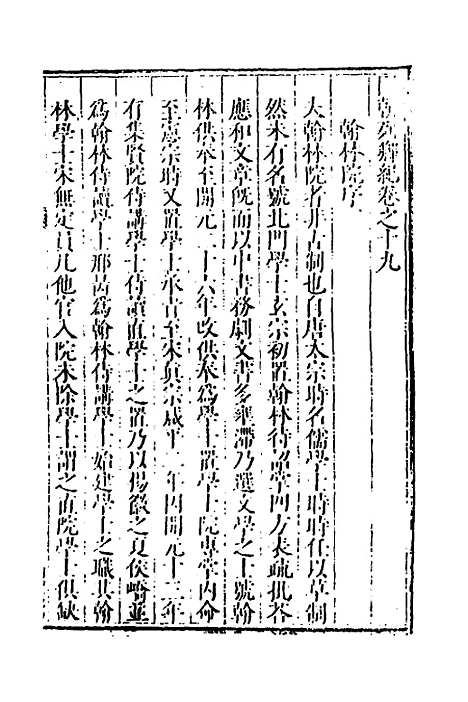 翰苑羣紀卷之十九
翰林院序
夫翰林院者非古制也自唐太宗時名儒學士時時任以草制
然未有名號北門學士玄宗初置翰林待詔掌四方表疏批荅
應和文章既而以中書務劇文書多壅滯乃選文學之士號翰
林供奉至開元二十六年改供奉為學士置學士院專掌內命
至憲宗時又置學士承旨至宋真宗咸平二年因開元十三年
有集賢院侍講學士侍讀直學士之置乃以楊徽之夏侯嶠並
為翰林侍讀學士邢昺為翰林侍講學士始建學士之職其翰
林學士宋無定員凡他官入院未除學士謂之直院學士俱缺